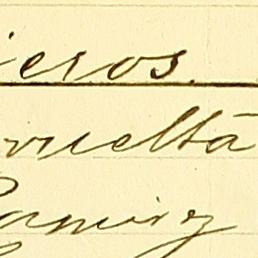 ieros.
vuelta
Ramirez